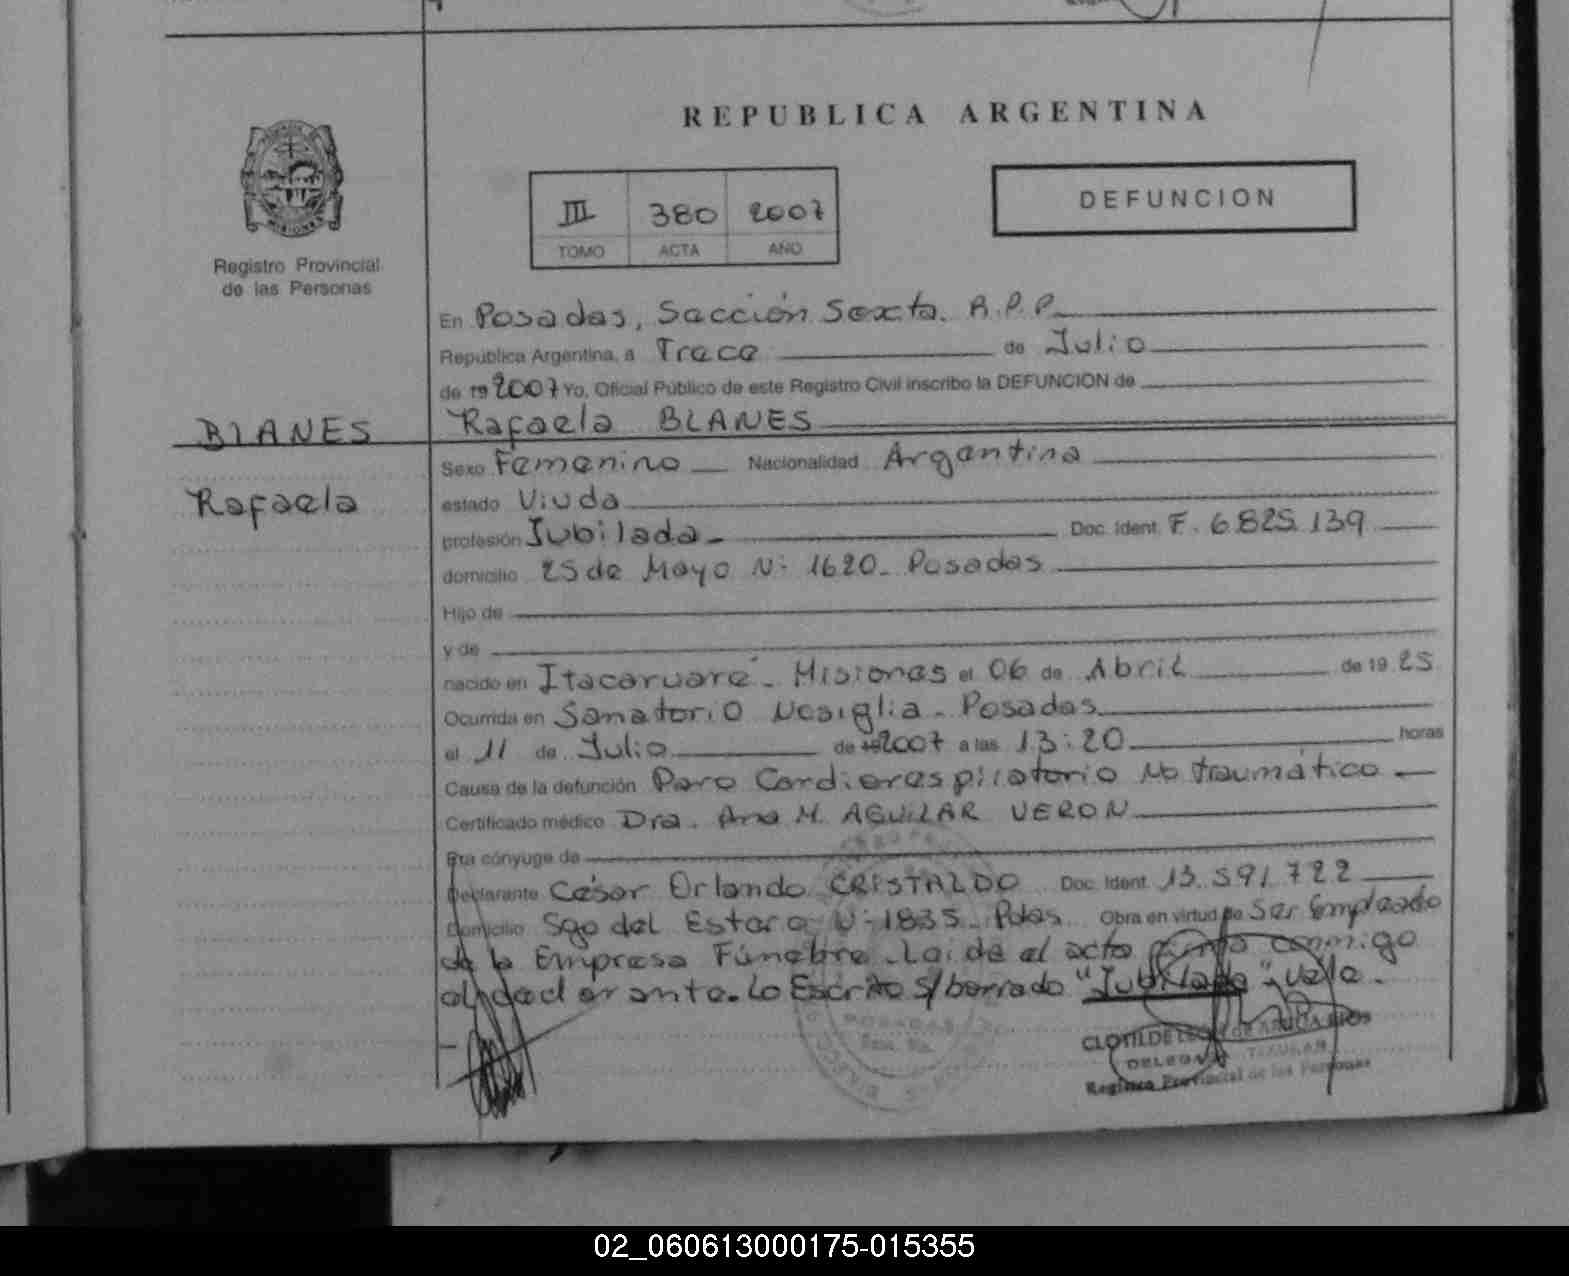 REPUBLICA ARGENTINA
MISIONES
Registro Provincial
de las Personas
III 380 2007
TOMO ACTA AÑO
DEFUNCION
En Posadas, Sección Sexta. R.P.P.
República Argentina, a Trece de Julio
de 19 2007 Yo, Oficial Público de este Registro Civil inscribo la DEFUNCION de
BLANES
Rafaela BLANES
Sexo Femenino Nacionalidad Argentina
Rafaela
estado Viuda
profesión Jubilada Doc. Ident. F. 6.825.139
domicilio 25 de Mayo Nº 1620 - Posadas
Hijo de
y de
nacido en Itacaruaré - Misiones el 06 de Abril de 19 25
Ocurrida en Sanatorio Nosiglia - Posadas
el 11 de Julio de 19 2007 a las 13:20 horas
Causa de la defunción Paro Cardiorespiratorio No traumático
Certificado médico Dra. Ana M. AGUILAR VERON
Era cónyuge de
Declarante César Orlando CRISTALDO Doc. Ident. 13.591.722
Domicilio Sgo del Estero Nº 1835 - Pdas. Obra en virtud de Ser Empleado
de la Empresa Fúnebre. Leída el acta firma conmigo
el declarante. Lo Escrito s/borrado "Jubilada", vale.
POSADAS
CLOTILDE
DELEGADA TITULAR
Registro Provincial de las Personas
02_060613000175-015355